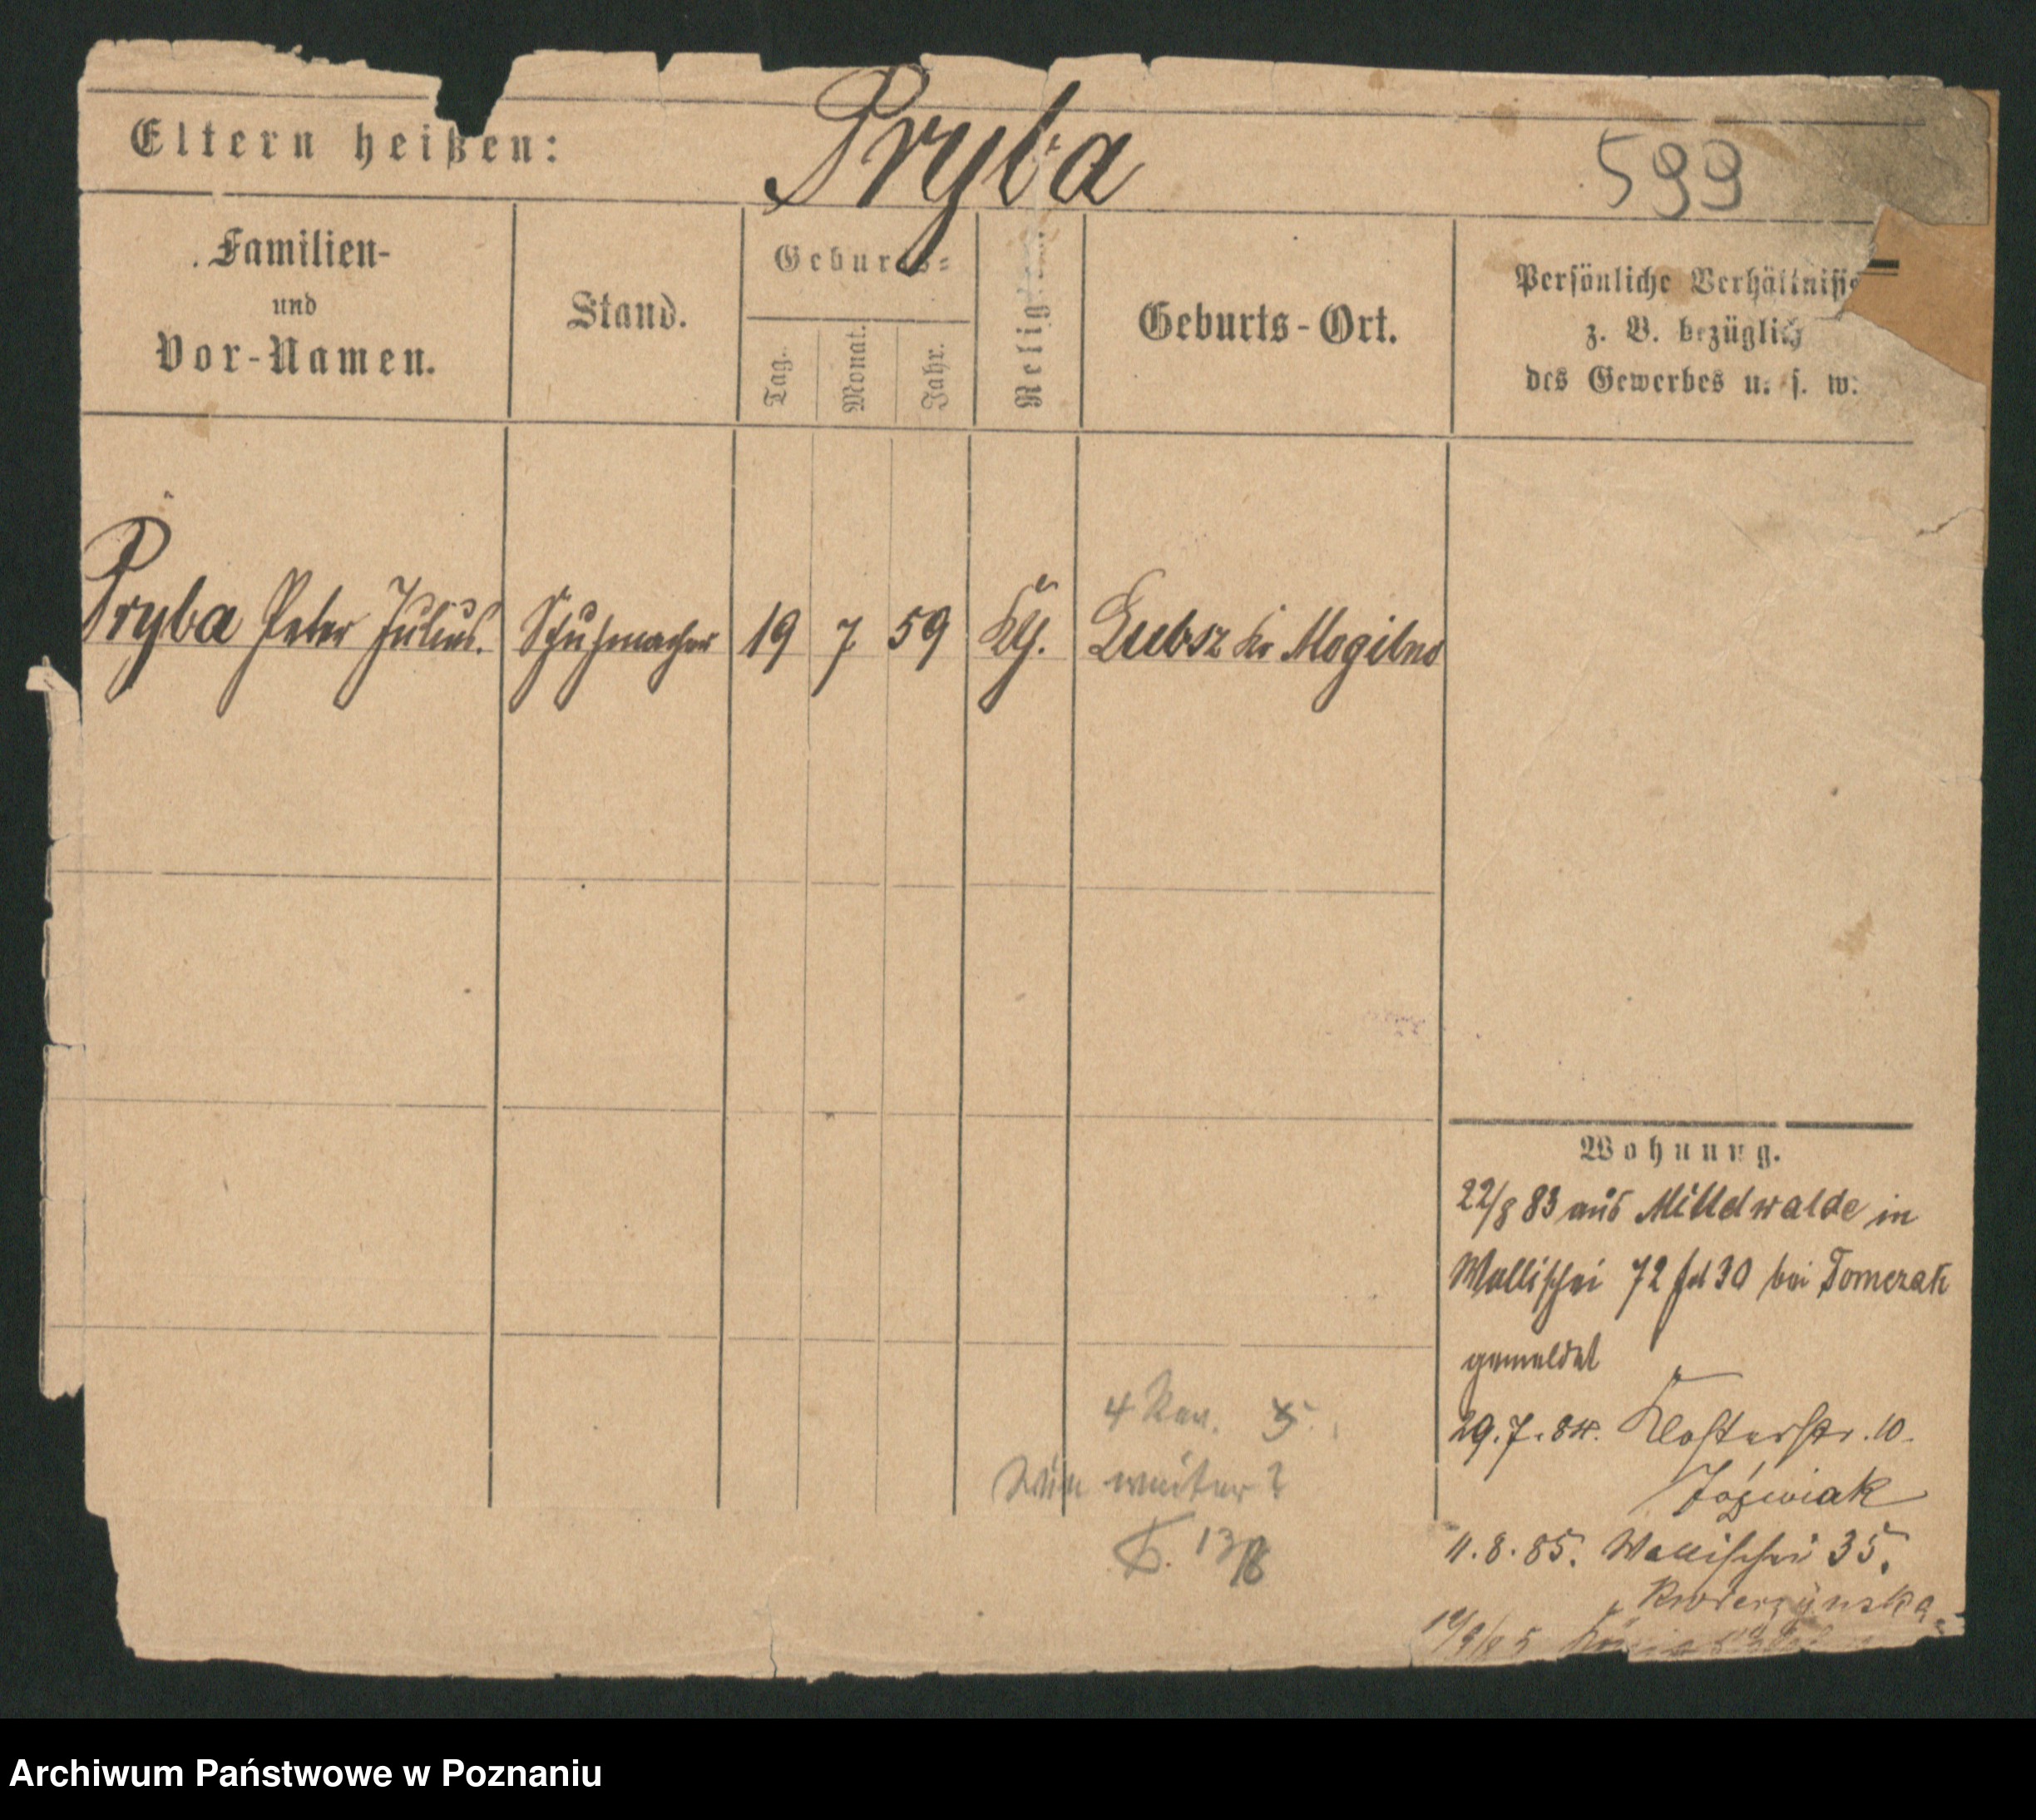 Eltern heißen:
Pryba
599
Familien-
und
Vor-Namen.
Stand.
Geburts-
Tag.
Monat.
Jahr.
Religion.
Geburts-Ort.
Persönliche Verhältnisse
z. B. bezüglich
des Gewerbes u. s. w.
Pryba Peter Julius. Schuhmacher 19 7 59 kth. Lubsz Kr Mogilno
Wohnung.
22/8 83 aus Mittelwalde in
Wallischei 72 bei Tomczak
gemeldet
29.7.84. Klosterstr. 10.
Jóźwiak
11.8.85. Wallischei 35.
4
weiter?